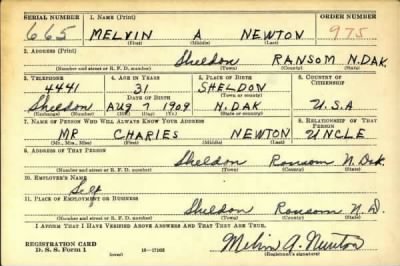 SERIAL NUMBER 1. NAME (Print) ORDER NUMBER
665 MELVIN A NEWTON 975
(First) (Middle) (Last)
2. ADDRESS (Print)
Sheldon RANSOM N.DAK.
(Number and street or R. F. D. number) (Town) (County) (State)
3. TELEPHONE 4. AGE IN YEARS 5. PLACE OF BIRTH 6. COUNTRY OF CITIZENSHIP
4441 31 SHELDON
DATE OF BIRTH (Town or county)
Sheldon AUG 7 1909 N.DAK U.S.A
(Exchange) (Number) (Mo.) (Day) (Yr.) (State or country)
7. NAME OF PERSON WHO WILL ALWAYS KNOW YOUR ADDRESS 8. RELATIONSHIP OF THAT PERSON
MR CHARLES NEWTON UNCLE
(Mr., Mrs., Miss) (First) (Middle) (Last)
9. ADDRESS OF THAT PERSON
Sheldon Ransom N. Dak.
(Number and street or R. F. D. number) (Town) (County) (State)
10. EMPLOYER'S NAME
Self
11. PLACE OF EMPLOYMENT OR BUSINESS
Sheldon Ransom N. D.
(Number and street or R. F. D. number) (Town) (County) (State)
I AFFIRM THAT I HAVE VERIFIED ABOVE ANSWERS AND THAT THEY ARE TRUE.
REGISTRATION CARD
D. S. S. Form 1 (over) 16-17105 Melvin A. Newton
(Registrant's signature)